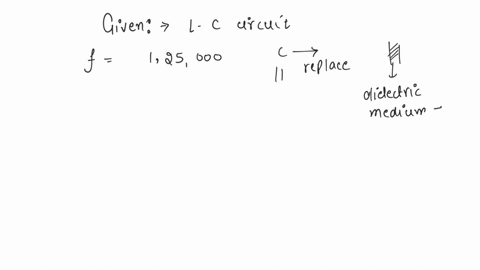 Given: → L-C circuit
f = 1,25,000
C → replace
||
dielectric
medium -